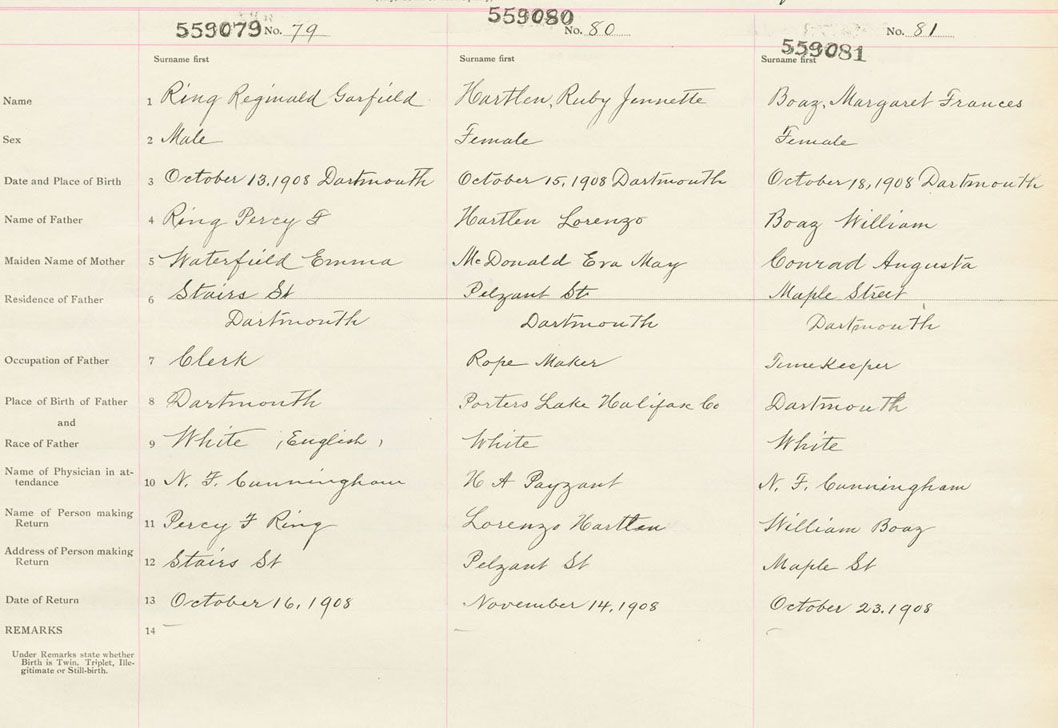 559079 No. 79 559080 No. 80 559081 No. 81
Surname first Surname first Surname first
Name 1 Ring Reginald Garfield Hartlen, Ruby Jennette Boaz, Margaret Frances
Sex 2 Male Female Female
Date and Place of Birth 3 October 13, 1908 Dartmouth October 15, 1908 Dartmouth October 18, 1908 Dartmouth
Name of Father 4 Ring Percy F Hartlen Lorenzo Boaz William
Maiden Name of Mother 5 Waterfield Emma McDonald Eva May Conrad Augusta
Residence of Father 6 Stairs St Pelzant St. Maple Street
Dartmouth Dartmouth Dartmouth
Occupation of Father 7 Clerk Rope Maker TimeKeeper
Place of Birth of Father 8 Dartmouth Porters Lake Halifax Co Dartmouth
and
Race of Father 9 White (English) White White
Name of Physician in at-
tendance 10 N. F. Cunningham H A Payzant N. F. Cunningham
Name of Person making
Return 11 Percy F Ring Lorenzo Hartlen William Boaz
Address of Person making
Return 12 Stairs St Pelzant St Maple St
Date of Return 13 October 16, 1908 November 14, 1908 October 23, 1908
REMARKS 14 — — —
Under Remarks state whether
Birth is Twin. Triplet, Ille-
gitimate or Still-birth.